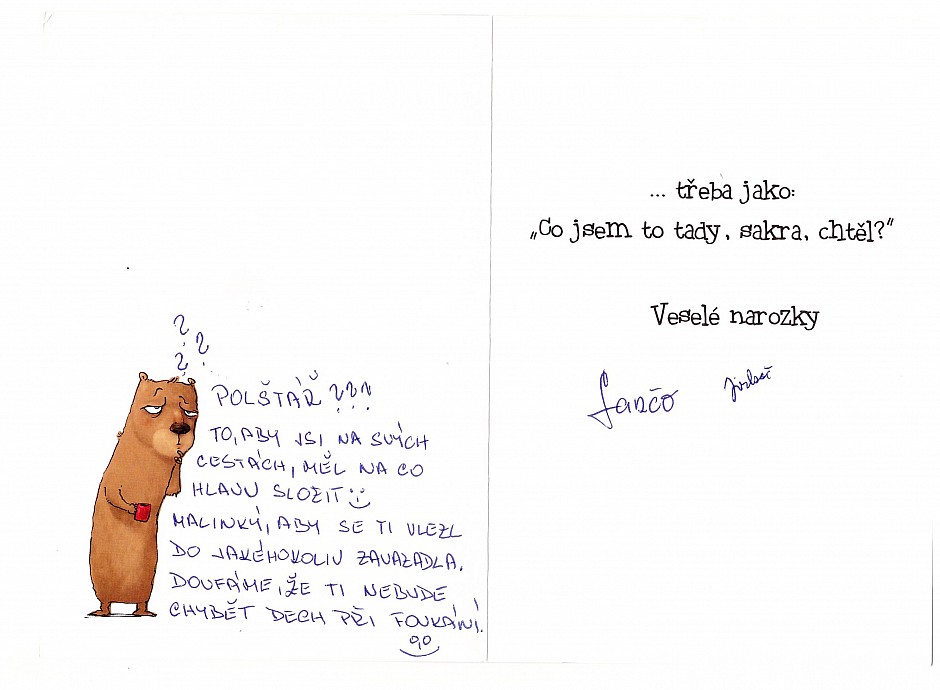 ???
POLŠTÁŘ ???
TO, ABY JSI NA SVÝCH
CESTÁCH, MĚL NA CO
HLAVU SLOŽIT :)
MALINKÝ, ABY SE TI VLEZL
DO JAKÉHOKOLIV ZAVAZADLA.
DOUFÁME, ŽE TI NEBUDE
CHYBĚT DECH PŘI FOUKÁNÍ.
... třeba jako:
„Co jsem to tady, sakra, chtěl?“
Veselé narozky